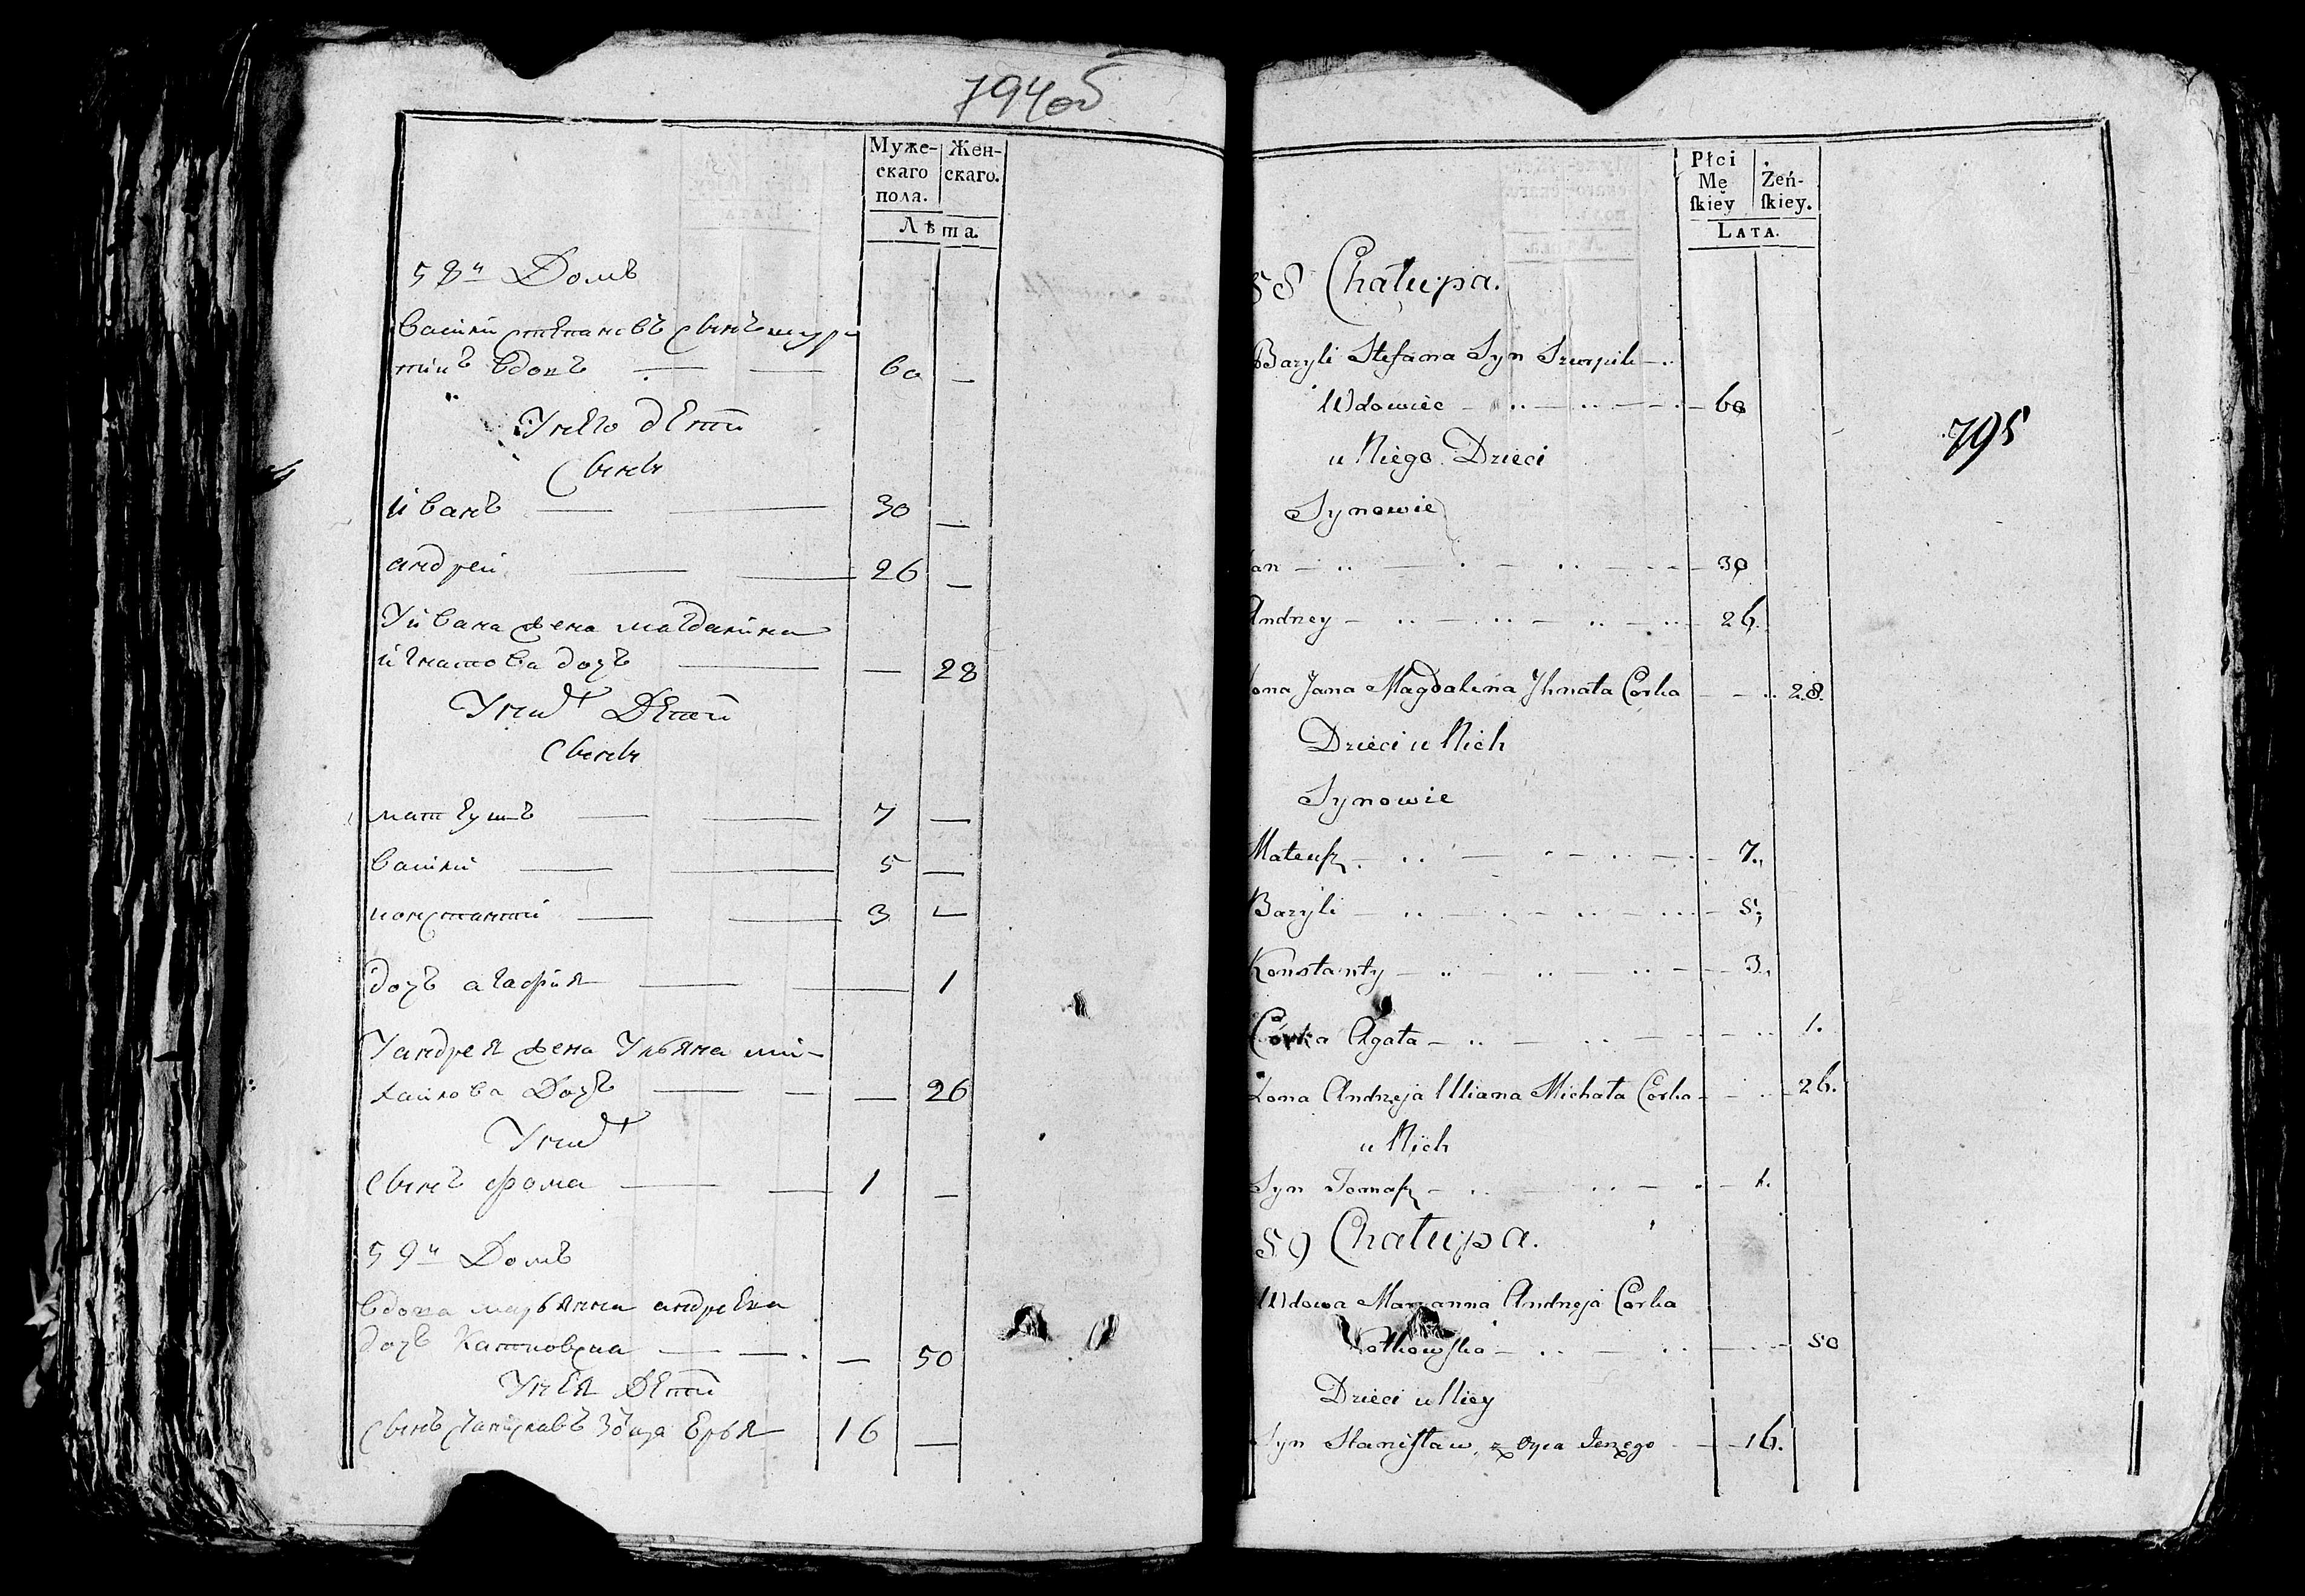 794об
Муже- Жен-
скаго скаго.
пола.
Лѣта.
58й Домъ
василй степановъ сынъ шур
пикъ вдовъ — — 60 —
У него дети
Сыны
иванъ — — 30 —
андрей — — 26 —
У ивана жена магдалина
игнатова дочь — — 28
У них дети
Сыны
матеушъ — — 7 —
василй — — 5 —
константй — — 3 —
дочь агафия — — 1
У андрея жена Ульяна ми-
хайлова Дочь — — — 26
У них
сынъ фома — — 1 —
59й Домъ
вдова марьянна андреева
дочь — — — 50
У нея Дети
сынъ станиславъ Юрья 16 —
Płci Żeń-
Mę skiey.
skiey
LATA.
58 Chałupa.
Bazyli Stefana Syn Szurpik
Wdowiec — 60
u Niego Dzieci
Synowie
an — 30
Andrzey — 26.
ona Jana Magdalena Ihnata Corka — 28.
Dzieci u Nich
Synowie
Mateusz — 7.
Bazyli — 5.
Konstanty — 3.
Córka Agata — 1.
Zona Andrzeja Uliana Michała Corka — 26.
u Nich
Syn Tomasz — 1.
59 Chałupa.
Wdowa Maryanna Andrzeja Corka
— 50
Dzieci u Niey
Syn Stanisław, z Oyca Jerzego — 16.
795